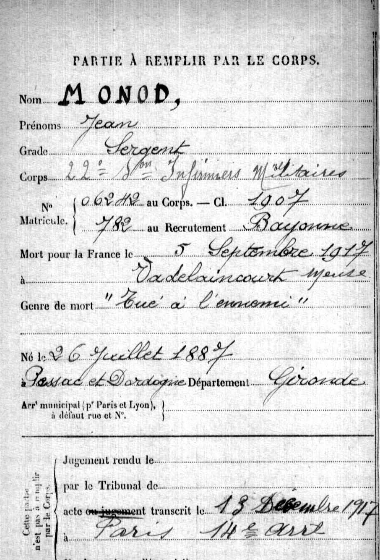 PARTIE À REMPLIR PAR LE CORPS.
Nom MONOD,
Prénoms Jean
Grade Sergent
Corps 22e Son Infirmiers Militaires
No 06242 au Corps. — Cl. 1907
Matricule. 782 au Recrutement Bayonne
Mort pour la France le 5 Septembre 1917
à Vadelaincourt Meuse
Genre de mort "Tué à l'ennemi"
Né le 26 Juillet 1887
à Pessac et Dordogne Département Gironde
Arrt municipal (pr Paris et Lyon), à défaut rue et No.
Cette partie n'est pas à remplir par le Corps.
Jugement rendu le
par le Tribunal de
acte ou jugement transcrit le 13 Décembre 1917
à Paris 14e arrt